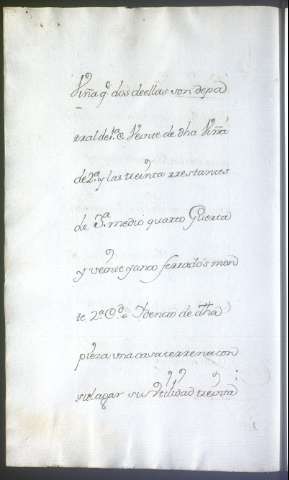 Viña q.e dos de ellas son de pa
rral de 1.a C. Veinte de dha Viña
de 2.a y las treinta rrestantes
de 3.a medio quarto Guerta
y veinte y cinco ferrados mon
te 2.a C.d Y dentro de dha
pieza una casa terrena con
su lagar su Vtilidad treinta